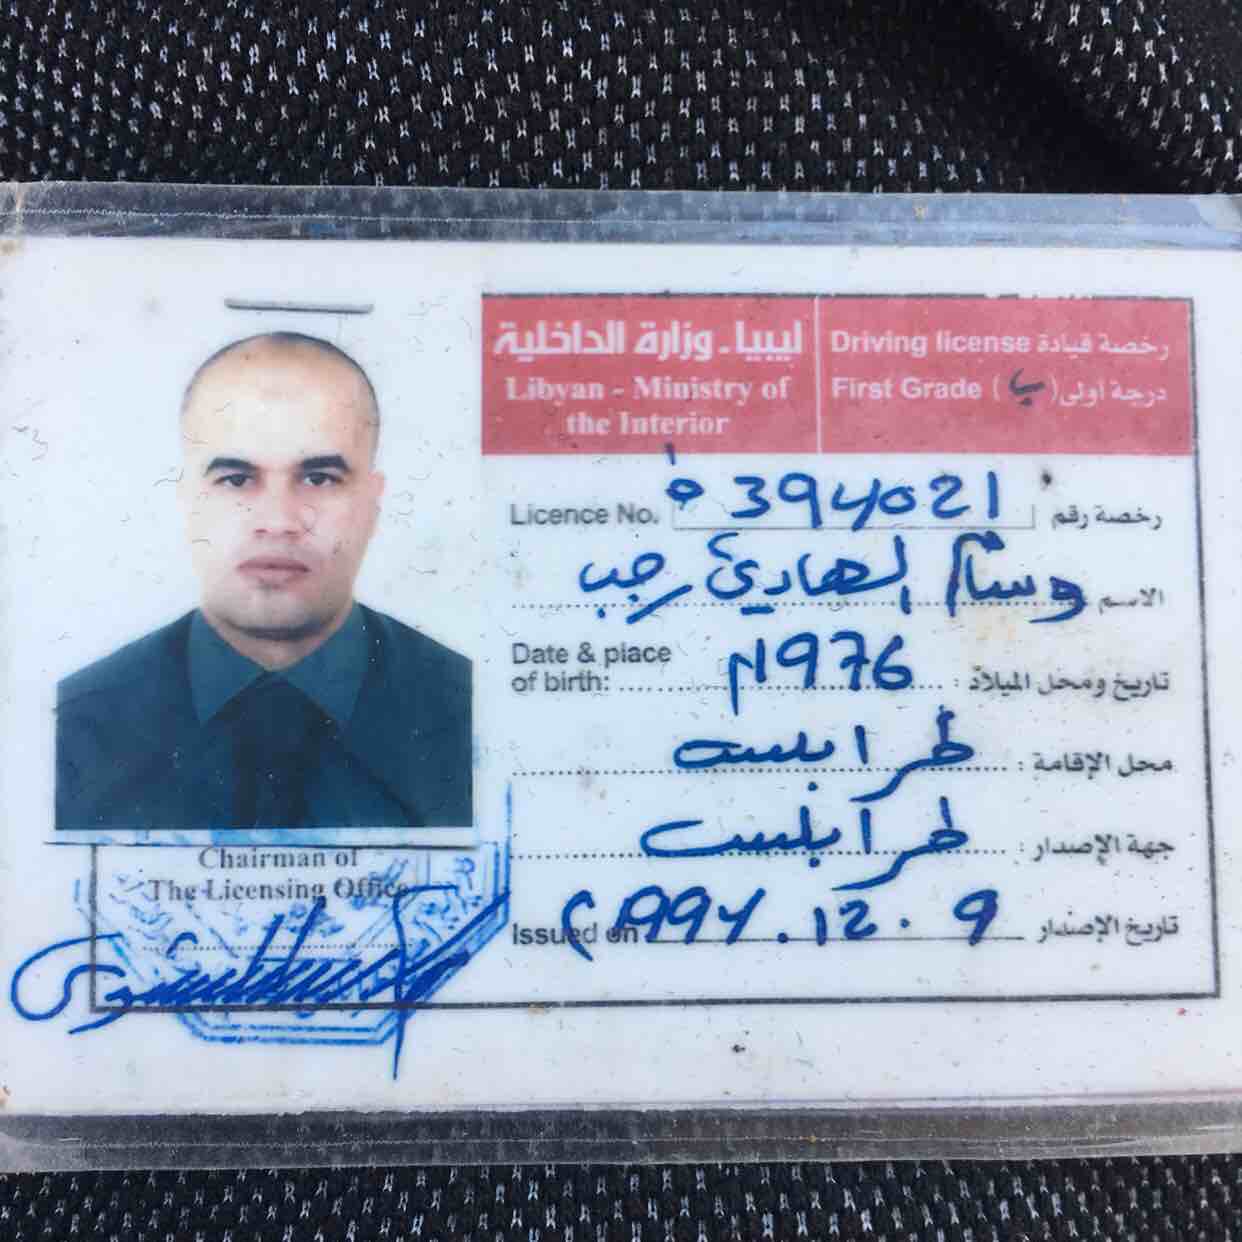 ليبيا - وزارة الداخلية
Libyan - Ministry of
the Interior
Driving license رخصة قيادة
First Grade (ب) درجة أولى
Licence No. 394021 رخصة رقم
الاسم وسام الهادي رجب
Date & place
of birth: 1976م تاريخ ومحل الميلاد :
محل الإقامة : طرابلس
جهة الإصدار : طرابلس
Issued on 1994.12.09 تاريخ الإصدار
Chairman of
The Licensing Office